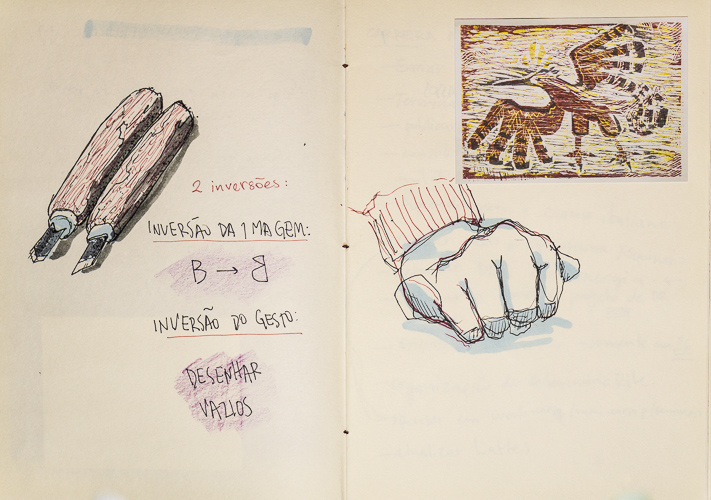 2 inversões:
INVERSÃO DA IMAGEM:
B → ᗺ
INVERSÃO DO GESTO:
DESENHAR
VAZIOS